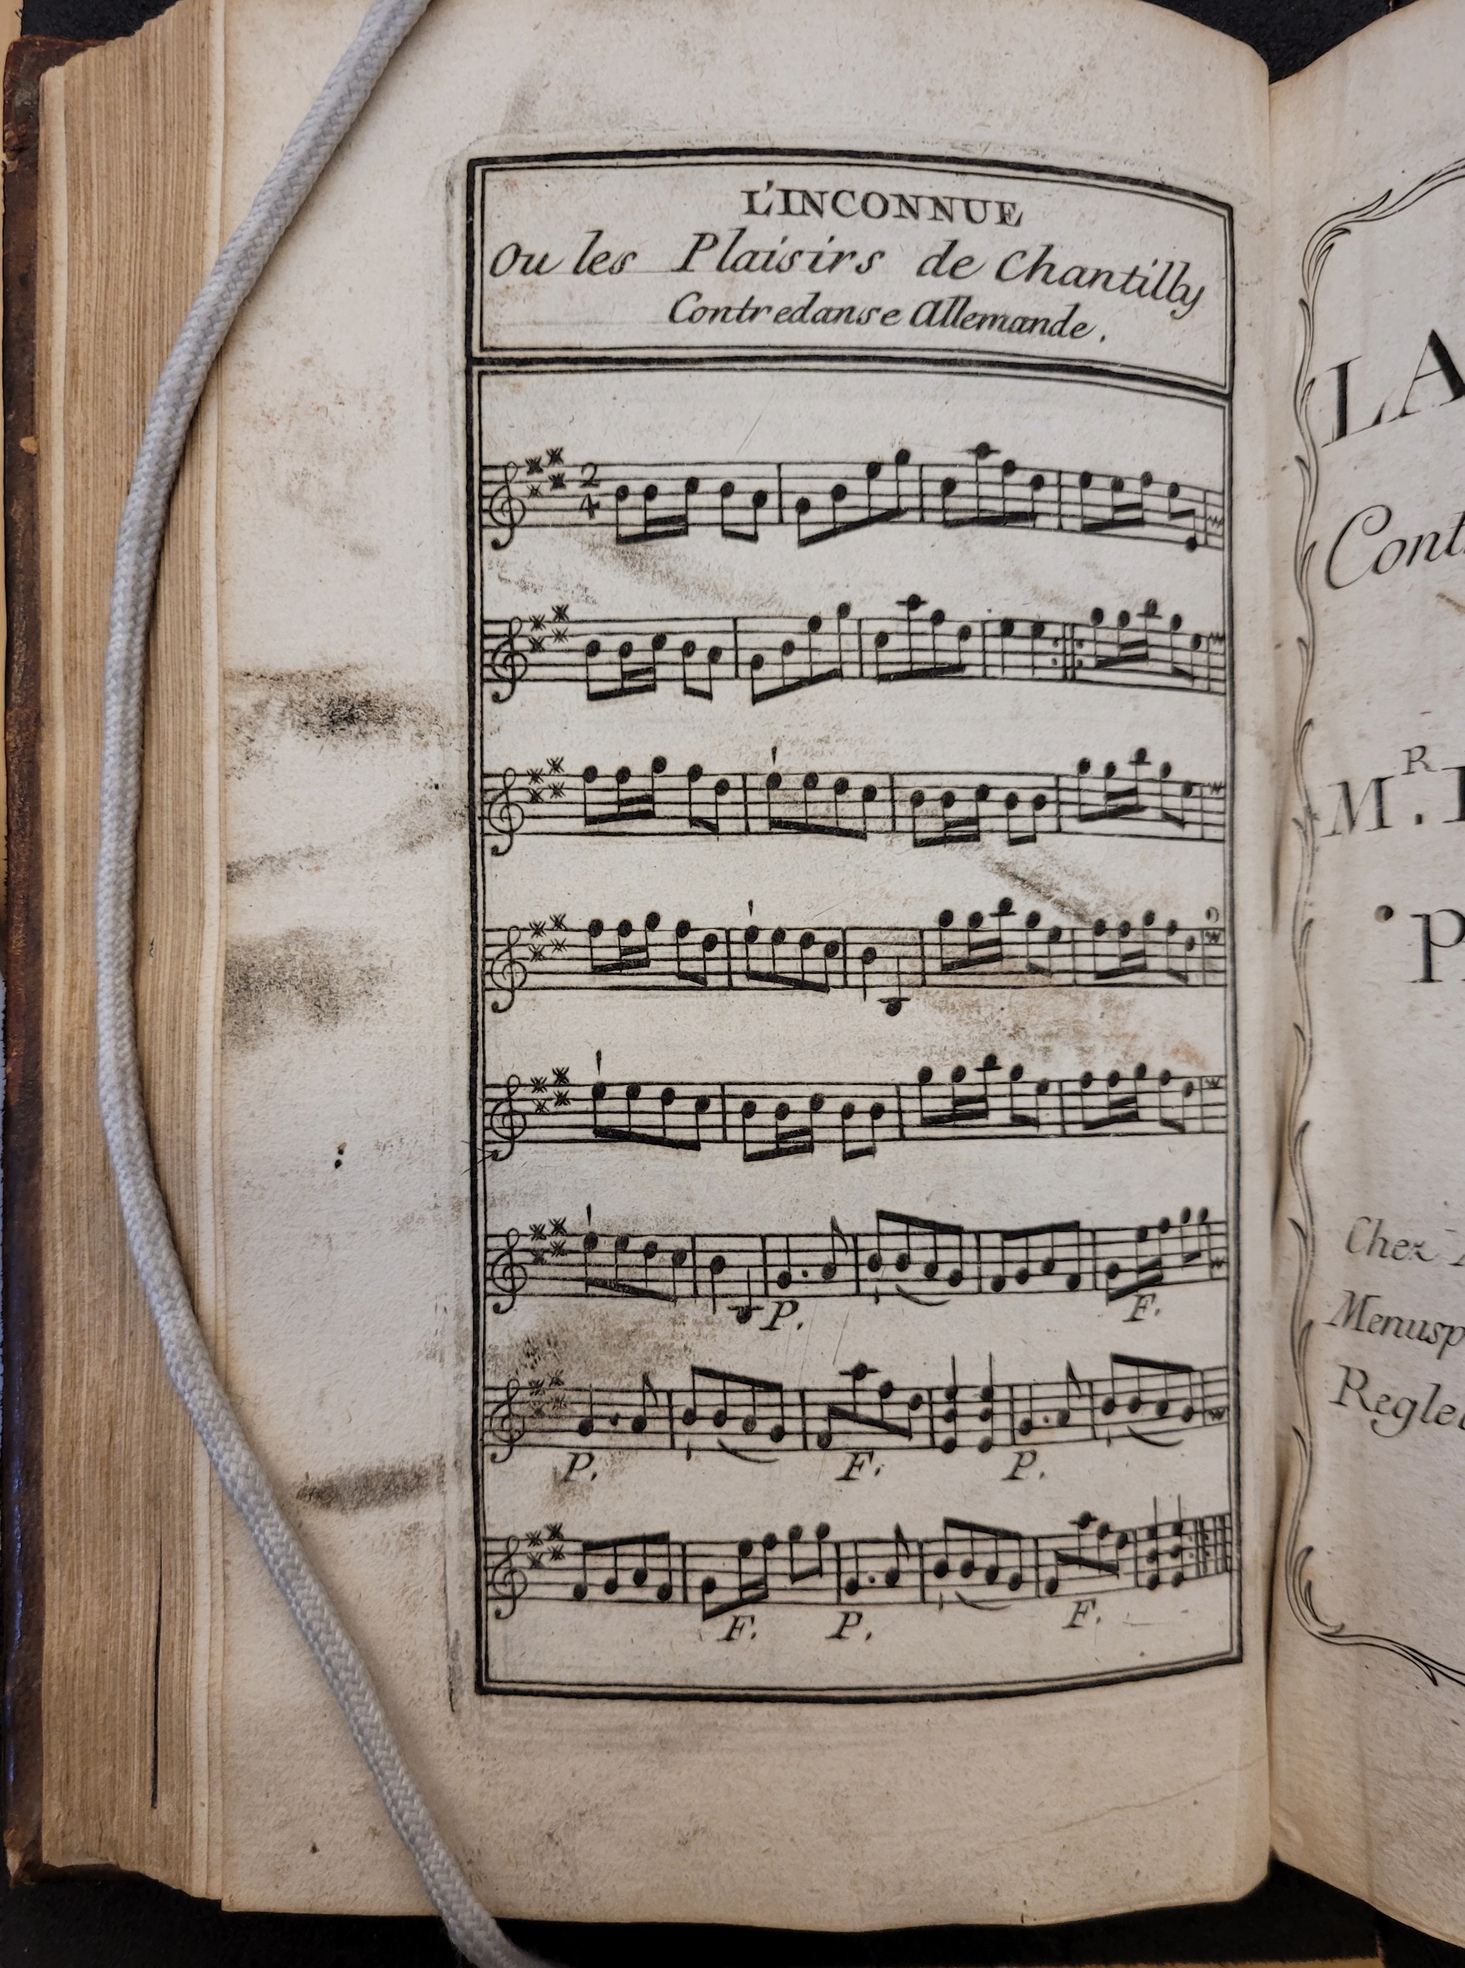 L'INCONNUE
Ou les Plaisirs de Chantilly
Contredanse Allemande.
2
4
P.
F.
P.
F.
P.
F.
P.
F.
LA
Cont
M.R
Chez
Menusp
Reglet